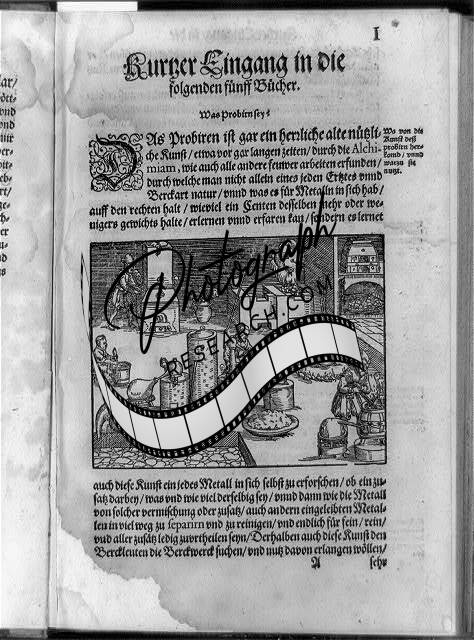 I
Kurtzer Eingang in die
folgenden fünff Bücher.
Was Probirn sey?
DAs Probiren ist gar ein herrliche alte nützli-
che Kunst / etwa vor gar langen zeiten / durch die Alchi-
miam, wie auch alle andere fewer arbeiten erfunden /
durch welche man nicht allein eines jeden Ertzes vnnd
Berckart natur / vnnd was es für Metaln in sich hab /
auff den rechten halt / wieviel ein Centen desselben mehr oder we-
nigers gewichts halte / erlernen vnnd erfaren kan / sondern es lernet
Wo von die
Kunst deß
probiren her-
komb / vnnd
warzu sie
nutzt.
Photograph
RESEARCH.COM
auch diese Kunst ein jedes Metall in sich selbst zu erforschen / ob ein zu-
satz darbey / was vnd wie viel derselbig sey / vnnd dann wie die Metall
von solcher vermischung oder zusatz / auch andern eingeleibten Metal-
len in viel weg zu separirn vnd zu reinigen / vnd endlich für fein / rein /
vnd aller zusätz ledig zuvrtheilen seyn / Derhalben auch diese Kunst den
Berckleuten die Berckwerck suchen / vnd nutz davon erlangen wöllen /
A sehr